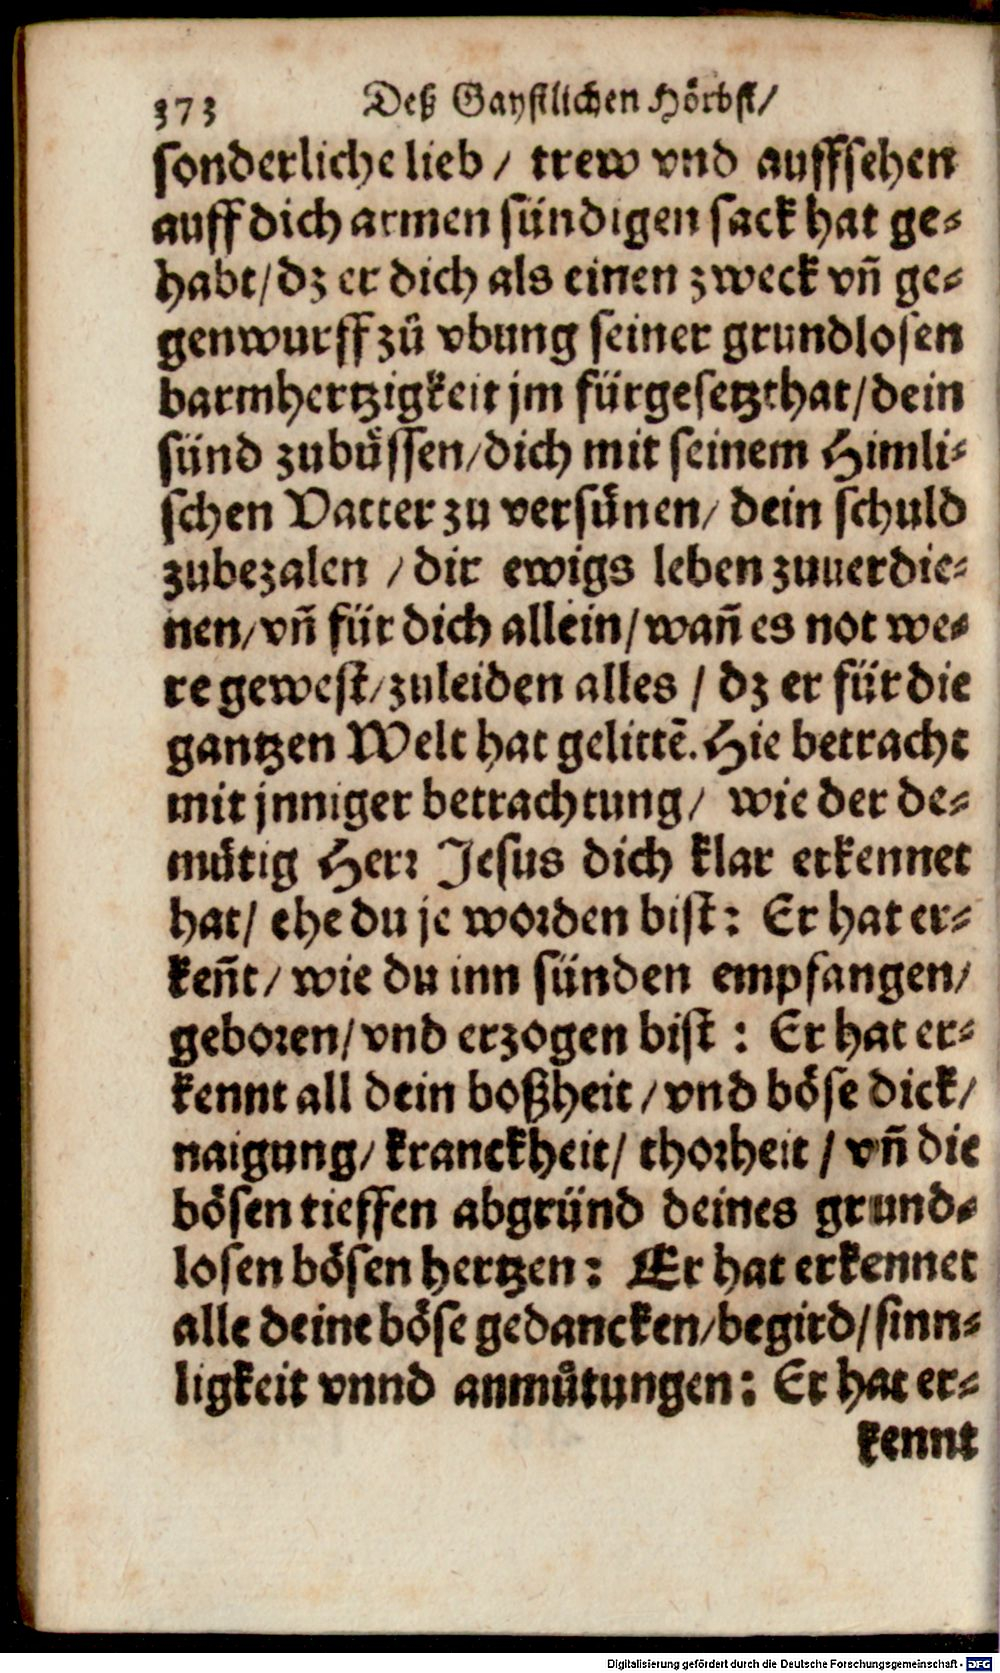 373 Deß Gaystlichen Hörbst/
sonderliche lieb / trew vnd auffsehen
auff dich armen sündigen sack hat ge-
habt/dz er dich als einen zweck vñ ge-
genwurff zů vbung seiner grundlosen
barmhertzigkeit jm fürgesetzt hat/dein
sünd zubüssen/dich mit seinem Himli-
schen Vatter zu versünen/ dein schuld
zubezalen / dir ewigs leben zuuerdie-
nen/vñ für dich allein/wañ es not we-
re gewest/zuleiden alles / dz er für die
gantzen Welt hat gelittē. Hie betracht
mit jnniger betrachtung/ wie der de-
mütig Herr Jesus dich klar erkennet
hat/ ehe du je worden bist: Er hat er-
keñt/ wie du inn sünden empfangen/
geboren/vnd erzogen bist : Er hat er-
kennt all dein boßheit/vnd böse dick/
naigung/kranckheit/ thorheit / vñ die
bösen tieffen abgründ deines grund-
losen bösen hertzen: Er hat erkennet
alle deine böse gedancken/begird/sinn-
ligkeit vnnd anmůtungen: Er hat er-
kennt
Digitalisierung gefördert durch die Deutsche Forschungsgemeinschaft - DFG